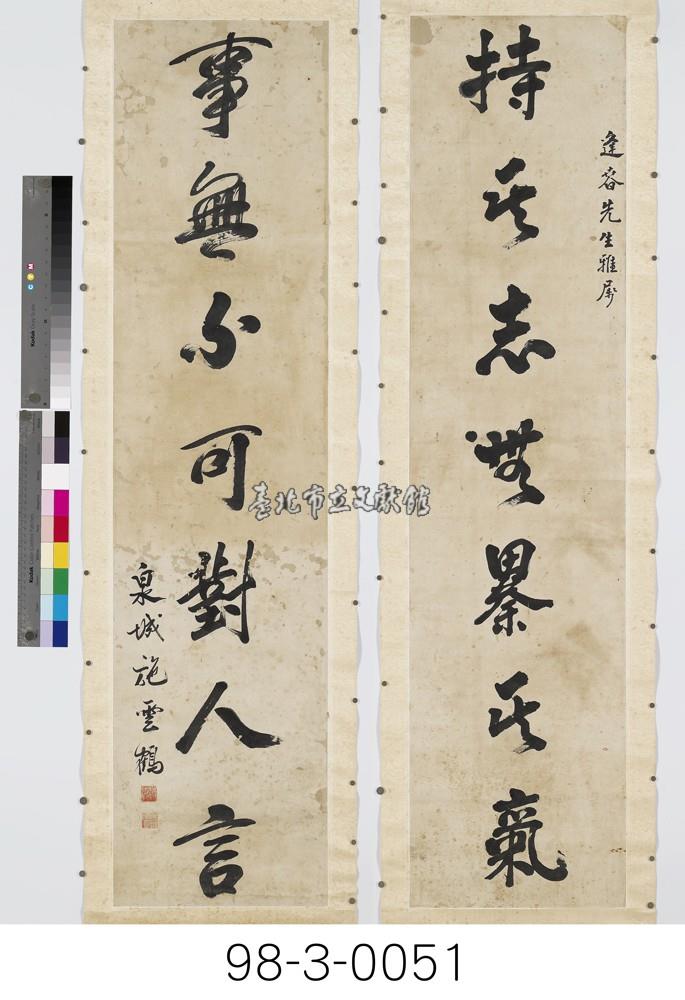 逢容先生雅屬
持其志無暴其氣
事無不可對人言
泉城施雲鶴
臺北市立文獻館
Kodak Gray Scale
C Y M
98-3-0051